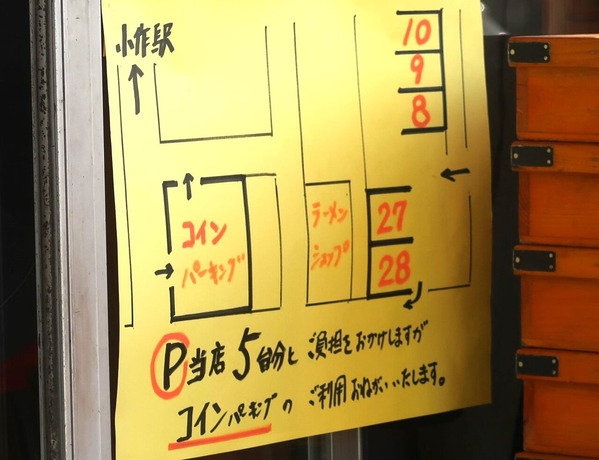 小作駅
↑
10
9
8
←
↑
コイン
パーキング
→
ラーメン
ショップ
27
28
P当店5台分と ご負担をおかけしますが
コインパーキングの ご利用おねがいいたします。